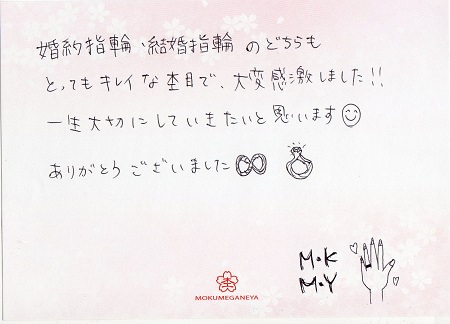 婚約指輪・結婚指輪のどちらも
とってもキレイな杢目で、大変感激しました!!
一生大切にしていきたいと思います
ありがとうございました
M・K
M・Y
杢
MOKUMEGANEYA